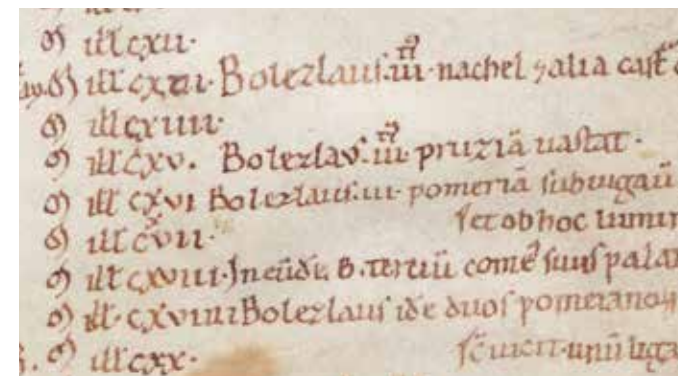 M ill cxii.
M ill cxiii. Bolezlaus.iii. nachel ⁊ alia cast
M ill cxiiii.
M ill cxv. Bolezlav.iii. pruziā uastat.
M ill cxvi Bolezlaus.iii. pomeriā subiugaū
M ill cxvii. set ob hoc lumin
M ill cxviii. B. terciū comes suus pala
M ill. cxviiii Bolezlaus idē duos pomeranos
M ill cxx. uicit. unū liga